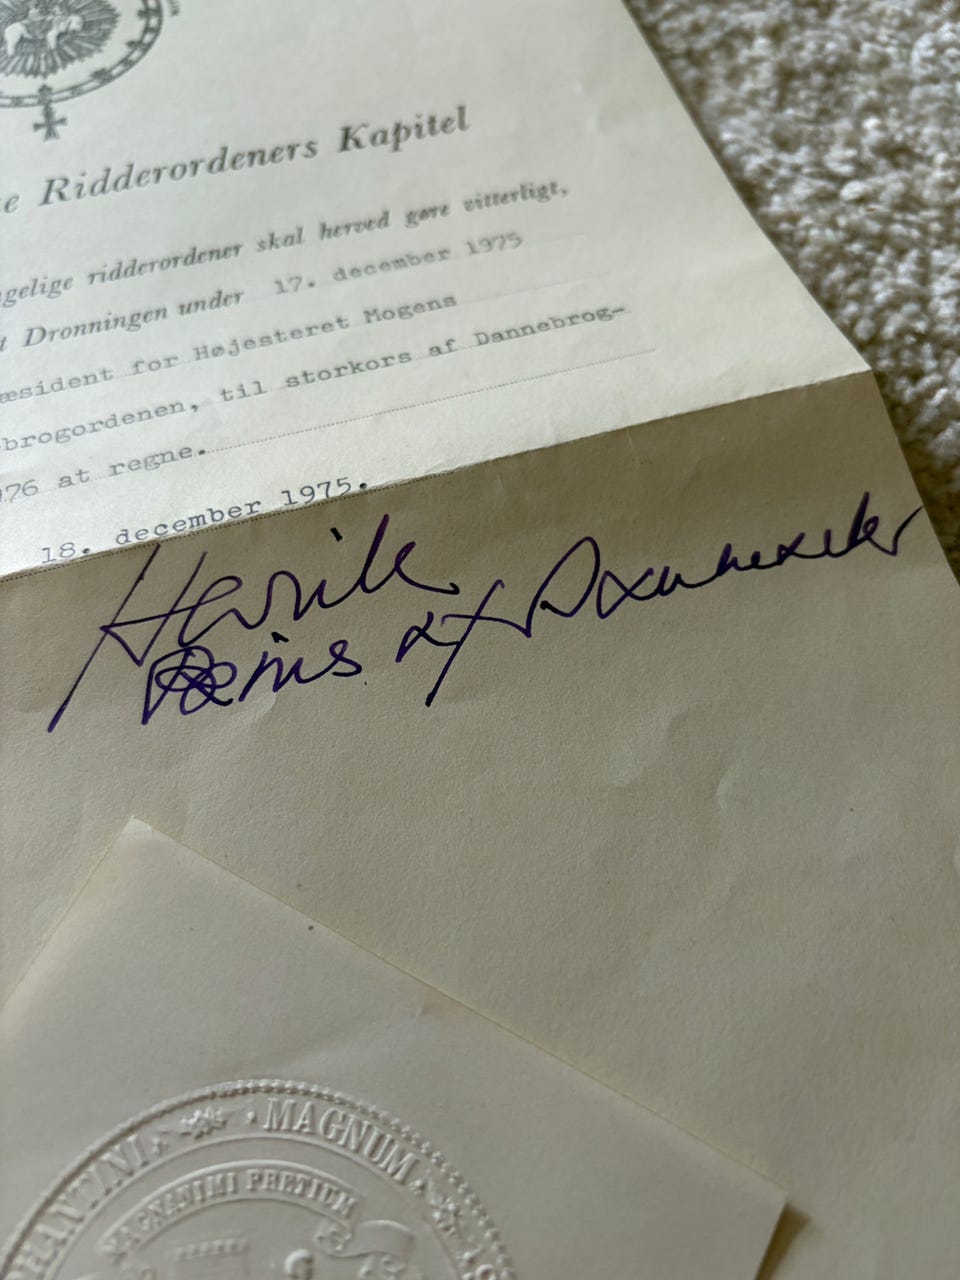 e Ridderordeners Kapitel
gelige ridderordener skal herved gøre vitterligt,
t Dronningen under 17. december 1975
æsident for Højesteret Mogens
brogordenen, til storkors af Dannebrog-
976 at regne.
18. december 1975.
Henrik
Prins af Danmark
HANTINI · MAGNUM
MAGNANIMI PRETIUM